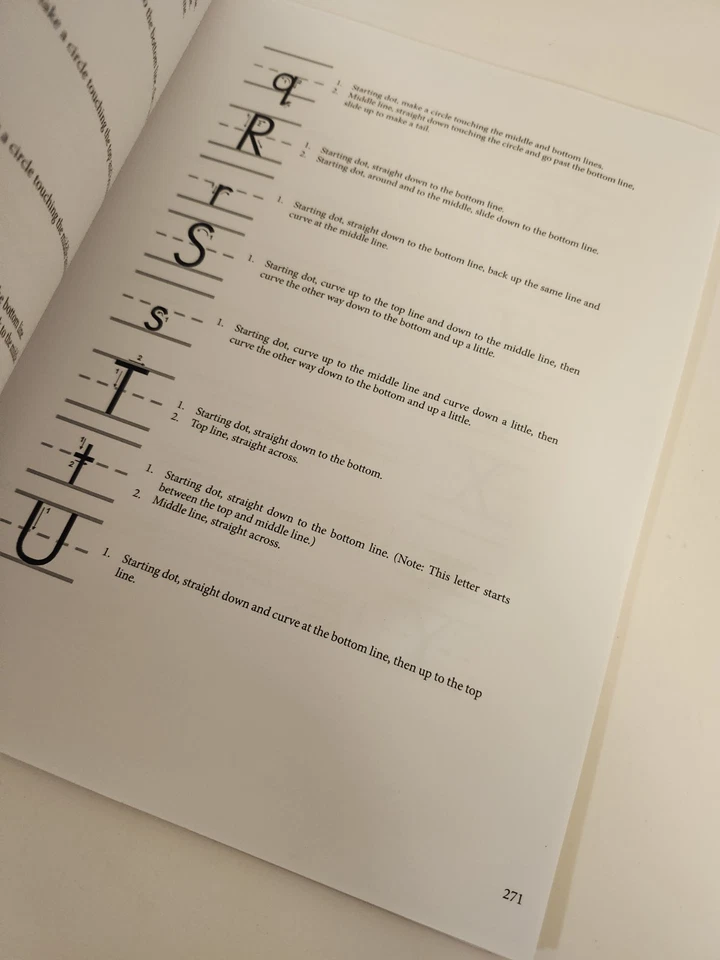 ake a circle
to the bottom line
a circle touching the
e bottom line
q
1. Starting dot, make a circle touching the middle and bottom lines.
2. Middle line, straight down touching the circle and go past the bottom line,
slide up to make a tail.
R
1. Starting dot, straight down to the bottom line.
2. Starting dot, around and to the middle, slide down to the bottom line.
r
1. Starting dot, straight down to the bottom line, back up the same line and
curve at the middle line.
S
1. Starting dot, curve up to the top line and down to the middle line, then
curve the other way down to the bottom and up a little.
s
1. Starting dot, curve up to the middle line and curve down a little, then
curve the other way down to the bottom and up a little.
T
1. Starting dot, straight down to the bottom.
2. Top line, straight across.
t
1. Starting dot, straight down to the bottom line. (Note: This letter starts
between the top and middle line.)
2. Middle line, straight across.
U
1. Starting dot, straight down and curve at the bottom line, then up to the top
line.
271